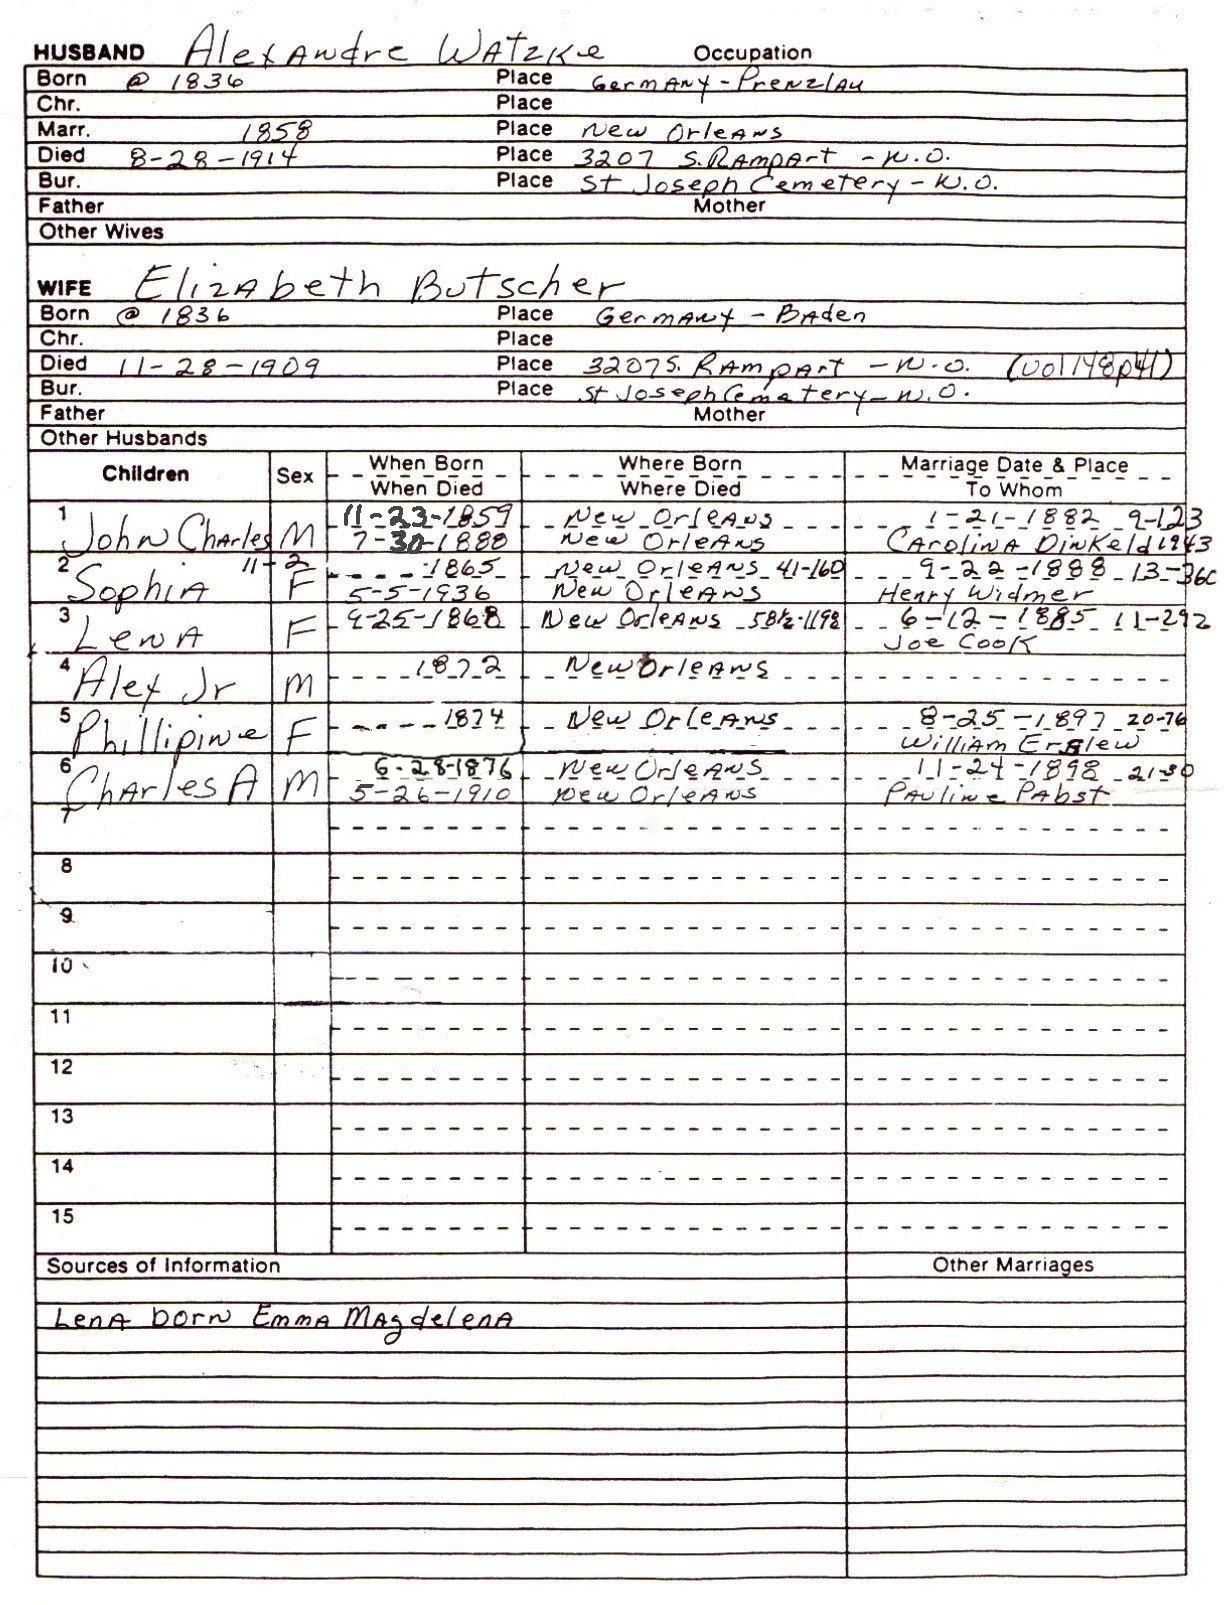 HUSBAND Alexandre Watzke Occupation
Born @ 1836 Place Germany - Prenzlau
Chr. Place
Marr. 1858 Place New Orleans
Died 8-28-1914 Place 3207 S. Rampart - N.O.
Bur. Place St Joseph Cemetery - N.O.
Father Mother
Other Wives
WIFE Elizabeth Butscher
Born @ 1836 Place Germany - Baden
Chr. Place
Died 11-28-1909 Place 3207 S. Rampart - N.O. (vol 148 p 41)
Bur. Place St Joseph Cemetery - N.O.
Father Mother
Other Husbands
Children Sex When Born Where Born Marriage Date & Place
When Died Where Died To Whom
1 11-23-1859 New Orleans 1-21-1882 9-123
John Charles M 7-30-1888 New Orleans Carolina Dinkeld 1943
2 11-2 1865 New Orleans 41-160 9-22-1888 13-360
Sophia F 5-5-1936 New Orleans Henry Widmer
3 9-25-1868 New Orleans 58½-1198 6-12-1885 11-292
Lena F Joe Cook
4 1872 New Orleans
Alex Jr M
5 1874 New Orleans 8-25-1897 20-76
Phillipine F William
6 6-28-1876 New Orleans 11-24-1898 21-30
Charles A M 5-26-1910 New Orleans Pauline Pabst
7
8
9
10
11
12
13
14
15
Sources of Information Other Marriages
Lena born Emma Magdelena